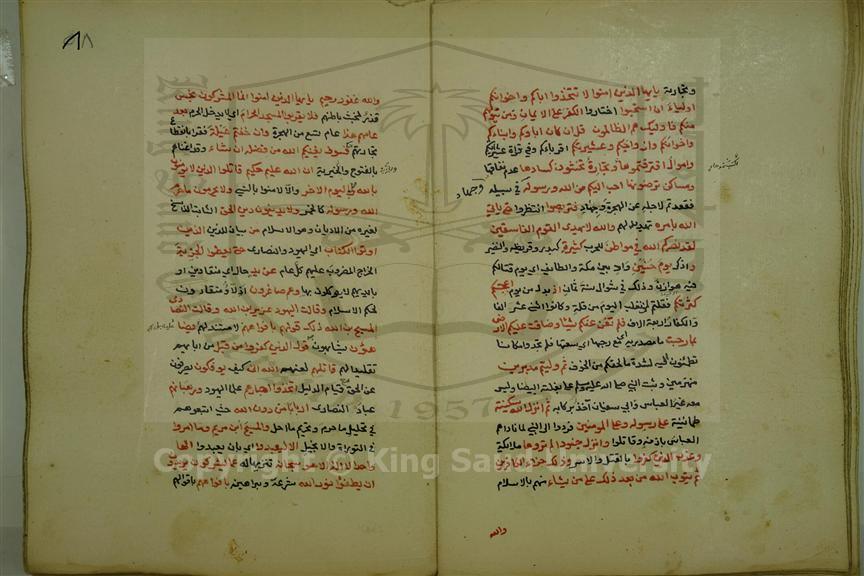 وتجارته يا ايها الذين امنوا لا تتخذوا اباكم واخوانكم
اولياء ان استحبوا اختاروا الكفر على الايمان ومن يتولهم
منكم فاوليك هم الظالمون قل ان كان اباوكم وابناءكم
واخوانكم وازواجكم وعشيرتكم اقرباؤكم وفي قراة عشيراتكم
واموال اقترفتموها وتجارة تخشون كسادها عدم نفاقها
ومساكن ترضونها احب اليكم من الله ورسوله في سبيله
وجهاد
فقعدتم لاجله عن الهجرة وجهاد فتربصوا انتظروا حتى ياتي
الله بامره تهديد لهم والله لا يهدي القوم الفاسقين
لقد نصركم الله في مواطن للحرب كثيرة كبدر وقريظة والنضير
واذكر يوم حنين واد بين مكة والطائف اي يوم قتالكم
فيه هوازن وذلك في شوال سنة ثمان اذ بدل من يوم اعجبتكم
كثرتكم فقلتم لن نغلب اليوم من قلة وكانوا اثنى عشر الفا
والكفار اربعة الاف فلم تغن عنكم شيئا وضاقت عليكم الارض
بما رحبت ما مصدرية اي مع رحبها اي سعتها فلم تجدوا مكانا
تطمئنون اليه لشدة ما لحقكم من الخوف ثم وليتم مدبرين
منهزمين وثبت النبي صلى الله عليه وسلم على بغلته البيضا وليس
معه غير العباس وابي سفيان آخذ بركابه ثم انزل الله سكينته
طمانينة على رسوله وعلى المومنين فردوا الى النبي لما ناداهم
العباس باذنه وقاتلوا وانزل جنودا لم تروها ملائكة
وعذب الذين كفروا بالقتل والاسر وذلك جزاء الكافرين
ثم يتوب الله من بعد ذلك على من يشاء منهم بالاسلام
والله
٨١
والله غفور رحيم يا ايها الذين امنوا انما المشركون نجس
قذر لخبث باطنهم فلا يقربوا المسجد الحرام اي لا يدخلوا الحرم بعد
عامهم هذا عام تسع من الهجرة وان خفتم عيلة فقرا بانقطاع
تجارتهم عنكم فسوف يغنيكم الله من فضله ان شاء وقد اغناهم
بالفتوح والجزية ان الله عليم حكيم قاتلوا الذين لا يومنون
بالله ولا باليوم الاخر والا لامنوا بالنبي ولا يحرمون ما حرم
الله ورسوله كالخمر ولا يدينون دين الحق الثابت الناسخ
لغيره من الاديان وهو الاسلام من بيان للذين الذين
اوتوا الكتاب اي اليهود والنصارى حتى يعطوا الجزية
الخراج المضروب عليهم كل عام عن يد حال اي منقادين او
بايديهم لا يوكلون بها وهم صاغرون اذلاء منقادون
لحكم الاسلام وقالت اليهود عزير ابن الله وقالت النصارى
المسيح ابن الله ذلك قولهم بافواههم لا مستند لهم
يضاهؤن يشابهون به قول الذين كفروا من قبل من ابايهم
تقليدا لهم قاتلهم لعنهم الله انى كيف يوفكون يصرفون
عن الحق مع قيام الدليل اتخذوا احبارهم علماء اليهود ورهبانهم
عباد النصارى اربابا من دون الله حيث اتبعوهم
في تحليل ما حرم وتحريم ما احل والمسيح ابن مريم وما امروا
في التوراة والانجيل الا ليعبدوا اي بان يعبدوا الها
واحدا لا اله الا هو سبحانه تنزيها له عما يشركون يريدون
ان يطفئوا نور الله شرعه وبراهينه بافواههم باقوالهم
Copyright © King Saud University
1957